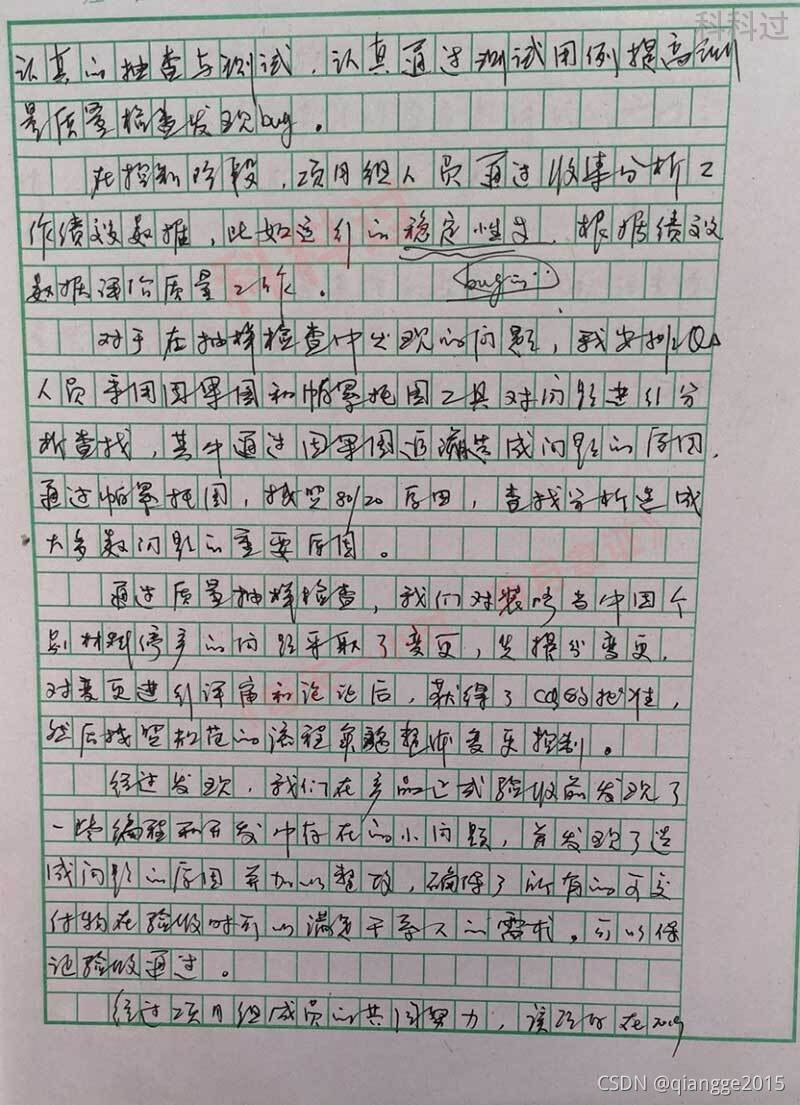 科科过
认真的抽查与测试，认真通过测试用例提高
质量检查发现bug。
在控制阶段，项目组人员通过收集分析工
作绩效数据，比如运行的稳定性 ，根据绩效
数据评价质量工作。 bug
对于在抽样检查中发现的问题，我安排QA
人员采用因果图和帕累托图工具对问题进行分
析查找，其中通过因果图追溯造成问题的原因，
通过帕累托图，按照80/20原因，查找分析造成
大多数问题的重要原因。
通过质量抽样检查，我们对装修当中因个
别材料停产的问题采取了变更，先提出变更，
对变更进行评审和论证后，获得了CCB的批准，
然后按照规范的流程实施整体变更控制。
经过发现，我们在产品正式验收前发现了
一些编程和开发中存在的小问题， 发现了造
成问题的原因并加以整改，确保了所有的可交
付物在验收时可以满足干系人的需求，可以保
证验收通过。
经过项目组成员的共同努力，该项目在2019
CSDN @qiangge2015